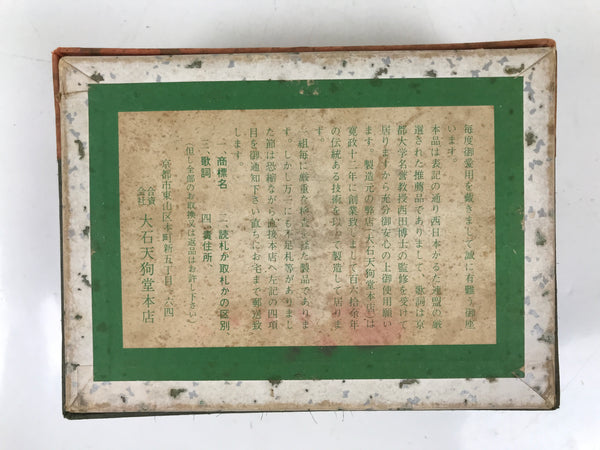 毎度御愛用を戴きまして誠に有難う御座
います。
本品は表記の通り西日本かるた連盟の厳
選された推薦品でありまして、歌詞は京
都大学名誉教授西田博士の監修を受けて
居りますから充分御安心の上御使用願い
ます。製造元の弊店(大石天狗堂本店)は
寛政十二年に創業致しまして百六拾余年
の伝統ある技術を以つて製造して居りま
す。
一組毎に厳重な検査を経た製品でありま
す。しかし万一にも不足札等がありまし
た節は恐縮ながら直接本店へ左記の四項
目を御通知下さい直ちにお宅まで郵送致
します。
一、商標名 二、読札か取札かの区別、
三、歌詞 四、御住所、
(但し全部のお取換又は返品はお許し下さい)
京都市東山区本町新五丁目一六四
合資会社 大石天狗堂本店